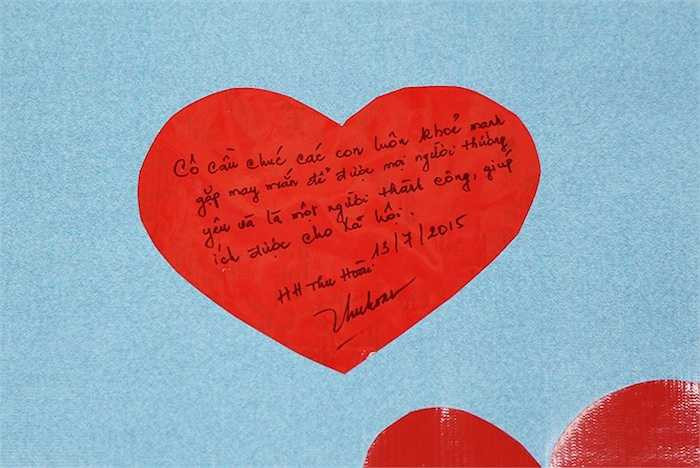 Cô cầu chúc các con luôn khoẻ mạnh
gặp may mắn để được mọi người thương
yêu và là một người thành công, giúp
ích được cho xã hội.
13/7/2015
HH Thu Hoài